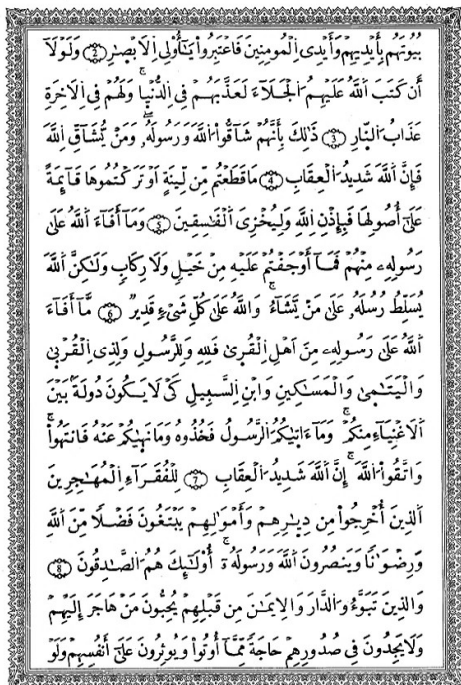 بُيُوتَهُم بِأَيْدِيهِمْ وَأَيْدِي الْمُومِنِينَ فَاعْتَبِرُوا يَٰأُوْلِي الْأَبْصَٰرِ (2) وَلَوْلَا
أَن كَتَبَ اللَّهُ عَلَيْهِمُ الْجَلَاءَ لَعَذَّبَهُمْ فِي الدُّنْيَا وَلَهُمْ فِي الْأَخِرَةِ
عَذَابُ النَّارِ (3) ذَٰلِكَ بِأَنَّهُمْ شَاقُّوا اللَّهَ وَرَسُولَهُ وَمَنْ يُّشَاقِّ اللَّهَ
فَإِنَّ اللَّهَ شَدِيدُ الْعِقَابِ (4) مَا قَطَعْتُم مِّن لِّينَةٍ اَوْ تَرَكْتُمُوهَا قَآئِمَةً
عَلَىٰ أُصُولِهَا فَبِإِذْنِ اللَّهِ وَلِيُخْزِيَ الْفَٰسِقِينَ (5) وَمَا أَفَاءَ اللَّهُ عَلَىٰ
رَسُولِهِ مِنْهُمْ فَمَا أَوْجَفْتُمْ عَلَيْهِ مِنْ خَيْلٍ وَلَا رِكَابٍ وَلَٰكِنَّ اللَّهَ
يُسَلِّطُ رُسُلَهُ عَلَىٰ مَنْ يَّشَاءُ وَاللَّهُ عَلَىٰ كُلِّ شَيْءٍ قَدِيرٌ (6) مَّا أَفَاءَ
اللَّهُ عَلَىٰ رَسُولِهِ مِنَ اَهْلِ الْقُرَىٰ فَلِلَّهِ وَلِلرَّسُولِ وَلِذِي الْقُرْبَىٰ
وَالْيَتَٰمَىٰ وَالْمَسَٰكِينِ وَابْنِ السَّبِيلِ كَيْ لَا يَكُونَ دُولَةً بَيْنَ
الْأَغْنِيَاءِ مِنكُمْ وَمَا ءَاتَىٰكُمُ الرَّسُولُ فَخُذُوهُ وَمَا نَهَىٰكُمْ عَنْهُ فَانتَهُوا
وَاتَّقُوا اللَّهَ إِنَّ اللَّهَ شَدِيدُ الْعِقَابِ (7) لِلْفُقَرَاءِ الْمُهَٰجِرِينَ
الَّذِينَ أُخْرِجُوا مِن دِيَٰرِهِمْ وَأَمْوَٰلِهِمْ يَبْتَغُونَ فَضْلًا مِّنَ اللَّهِ
وَرِضْوَٰنًا وَيَنصُرُونَ اللَّهَ وَرَسُولَهُ أُوْلَٰئِكَ هُمُ الصَّٰدِقُونَ (8)
وَالَّذِينَ تَبَوَّءُو الدَّارَ وَالْإِيمَٰنَ مِن قَبْلِهِمْ يُحِبُّونَ مَنْ هَاجَرَ إِلَيْهِمْ
وَلَا يَجِدُونَ فِي صُدُورِهِمْ حَاجَةً مِّمَّا أُوتُوا وَيُوثِرُونَ عَلَىٰ أَنفُسِهِمْ وَلَوْ